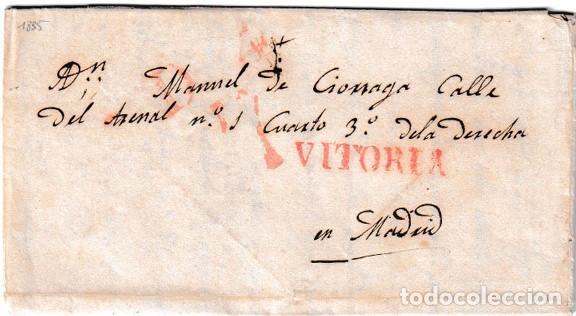 1835
A Dn Manuel de Ciorraga Calle
del Arenal nº 1 Cuarto 3º dela derecha
VITORIA
en Madrid
todocoleccion.net